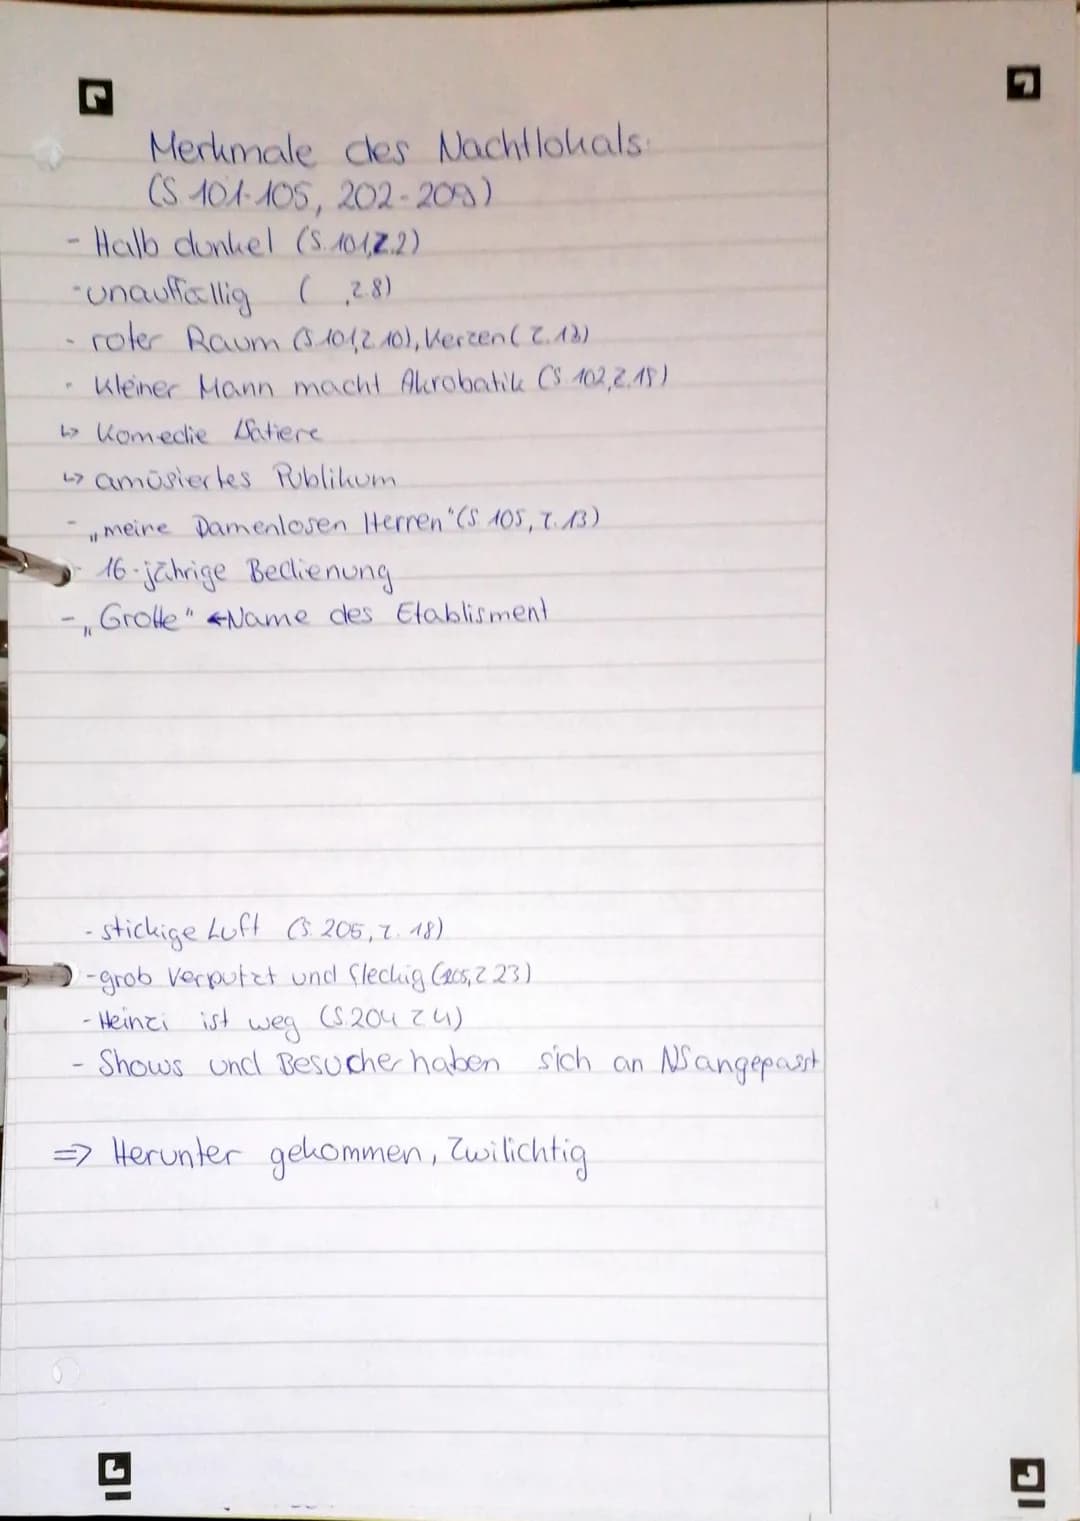 Merkmale des Nachtlokals:
(S 101-105, 202-209)
- Halb dunkel (S.101,Z.2)
- unauffällig ( ,Z.8)
- roter Raum (S.101,Z 10), Kerzen (Z.13)
- Kleiner Mann macht Akrobatik (S 102,Z.18)
↳ Komedie Satiere
↳ amüsiertes Publikum
- „meine Damenlosen Herren" (S 105, Z.13)
- 16-jährige Bedienung
- „Grotte" ← Name des Etablisment
- stickige Luft (S. 205, Z. 18)
- grob Verputzt und fleckig (205, Z 23)
- Heinzi ist weg (S.204 Z 4)
- Shows und Besucher haben sich an NS angepasst
=> Herunter gekommen, Zwilichtig